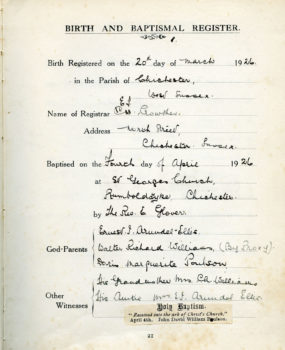 BIRTH AND BAPTISMAL REGISTER.
Birth Registered on the 20th day of March 1926.
in the Parish of Chichester,
West Sussex.
Name of Registrar Crowther
Address North Street,
Chichester Sussex.
Baptised on the Fourth day of April 1926
at St Georges Church,
Rumboldsyke, Chichester
by The Rev. E Glover.
Ernest J. Arundel-Ellis.
God-Parents
Walter Richard Williams, (By Proxy)
Doris Marguerite Poulson
His Grandmother Mrs Ch Williams
Other
Witnesses
His Auntie Mrs E J. Arundel Ellis
Holy Baptism.
"Received into the ark of Christ's Church,"
April 4th. John David William Poulson.
21